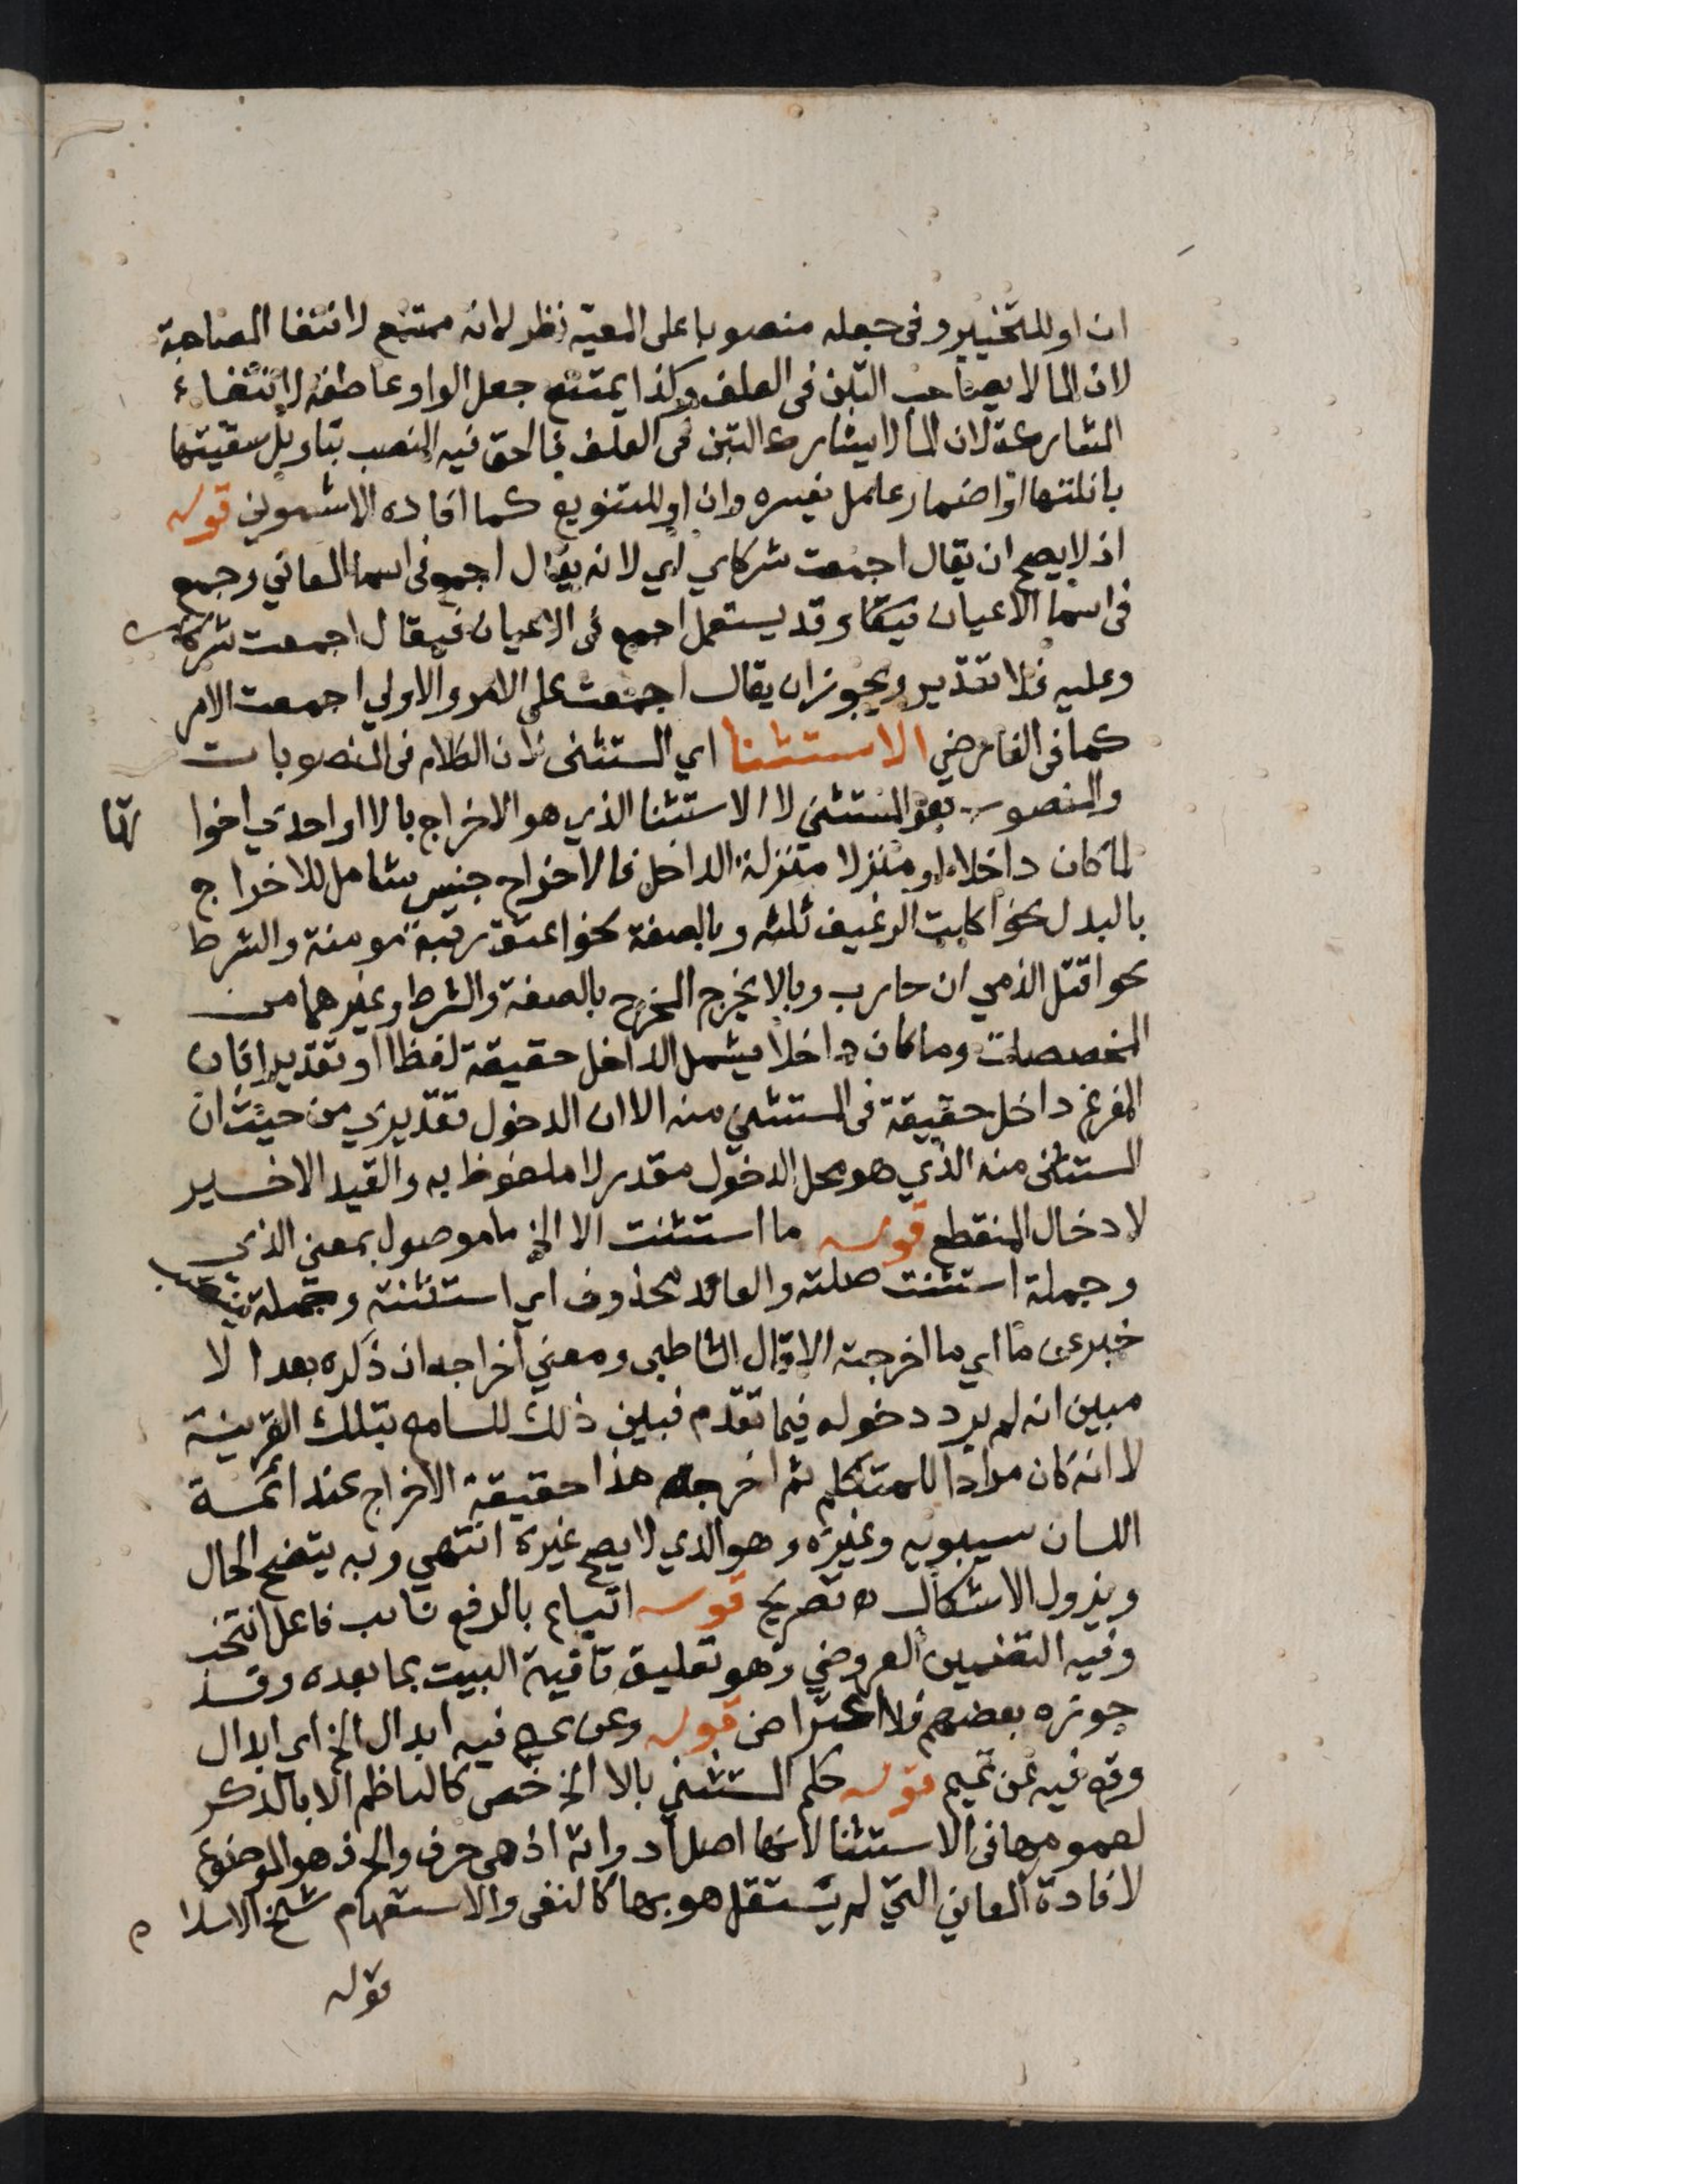 ان او للتخيير وفى جعله منصوبا على المعية نظر لانه ممتنع لانتفا المصاحبة
لان الما لا يصاحب التبن فى العلف وكذا يمتنع جعل الواو عاطفة لانتفاء
المشاركة لان الما لا يشارك التبن فى العلف فالحق فيه النصب بتاويل سقيتها
بانلتها او اضمار عامل نفسره وان او للتنويع كما افاده الاشموني قوله
اذ لا يصح ان يقال اجمعت شركاي اي لانه يقال اجمع فى اسما المعاني وجمع
فى اسما الاعيان وقد يستعمل اجمع فى الاعيان فيقال اجمعت شركا
وعليه فلا تقدير ويجوز ان يقال اجمعت على الامر والاولي اجمعت الامر
كما فى الفارضي الاستثنا اي المستثنى لان الكلام فى المنصوبات
والمنصوب هو المستثني لا الاستثنا الذي هو الاخراج بالا او احدي اخوا تها
لما كان داخلا او منزلا منزلة الداخل فالاخراج جنس شامل للاخراج
بالبدل نحو اكلت الرغيف ثلثه وبالصفة نحو اعتق رقبة مومنة والشرط
نحو اقتل الذمي ان حارب وبالا يخرج المخرج بالصفة والشرط وغيرهما من
المخصصات وما كان داخلا يشمل الداخل حقيقة لفظا او تقديرا فان
المفرغ داخل حقيقة فى المستثني منه الا ان الدخول تقديري من حيث ان
المستثنى منه الذي هو محل الدخول مقدر لا ملفوظ به والقيد الاخير
لادخال المنقطع قوله ما استثنت الا الخ ما موصول بمعنى الذي
وجملة استثنت صلته والعائد محذوف اي استثنته وجملة ينتصب
خبر عن ما اي ما اخرجته الا قال الشاطبى ومعني اخراجه ان ذكره بعد الا
مبين انه لم يرد دخوله فيما تقدم فبين ذلك للسامع بتلك القرينة
لا انه كان مرادا للمتكلم ثم اخرجه هذا حقيقة الاخراج عند ائمة
اللسان سيبويه وغيره وهو الذي لا يصح غيره انتهي وبه يتضح الحال
ويزول الاشكال ه تصريح قوله اتباع بالرفع نائب فاعل انتخب
وفيه التضمين العروضي وهو تعليق قافية البيت بما بعده وقد
جوزه بعضهم فلا اعتراض قوله وعن تميم فيه ابدال الخ اي ابدال
وقع فيه عن تميم قوله حكم المستثني بالا الخ خص كالناظم الا بالذكر
لعمومها فى الاستثنا لانها اصل ادواته اذ هى حرف والحرف هو الموضوع
لافادة المعاني التي لم يستقل هو بها كالنفى والاستفهام شيخ الاسلا م
قوله